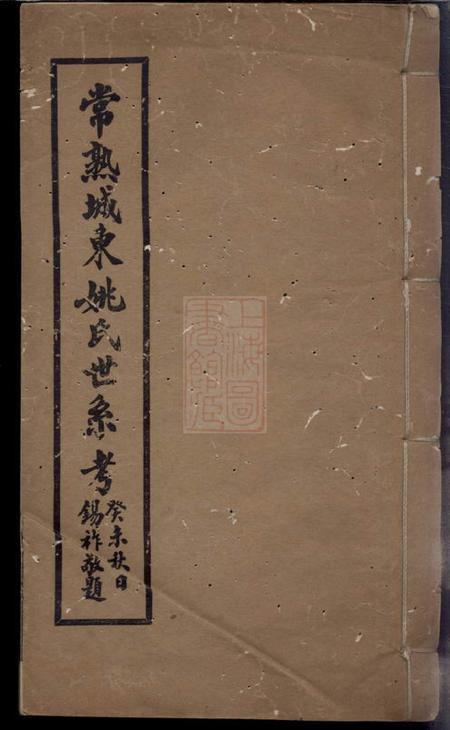 常熟城東姚氏世系考
癸未秋日
錫祚敬題
上海圖
書館藏